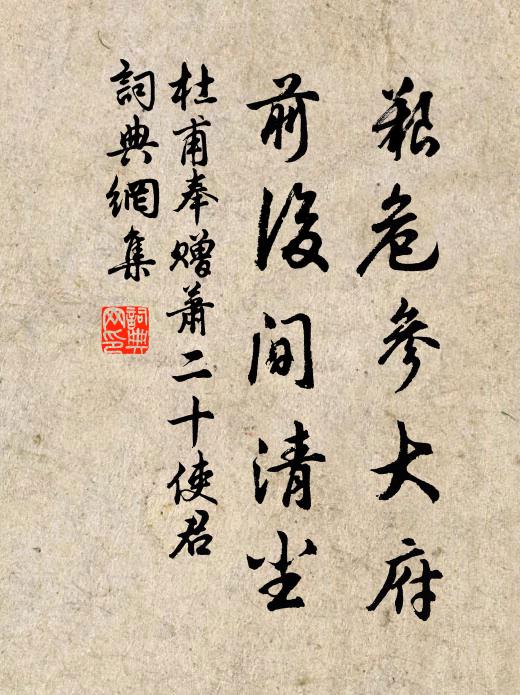 艱危參大府
前後間清塵
杜甫奉贈蕭二十使君
詞典網集
詞典網印